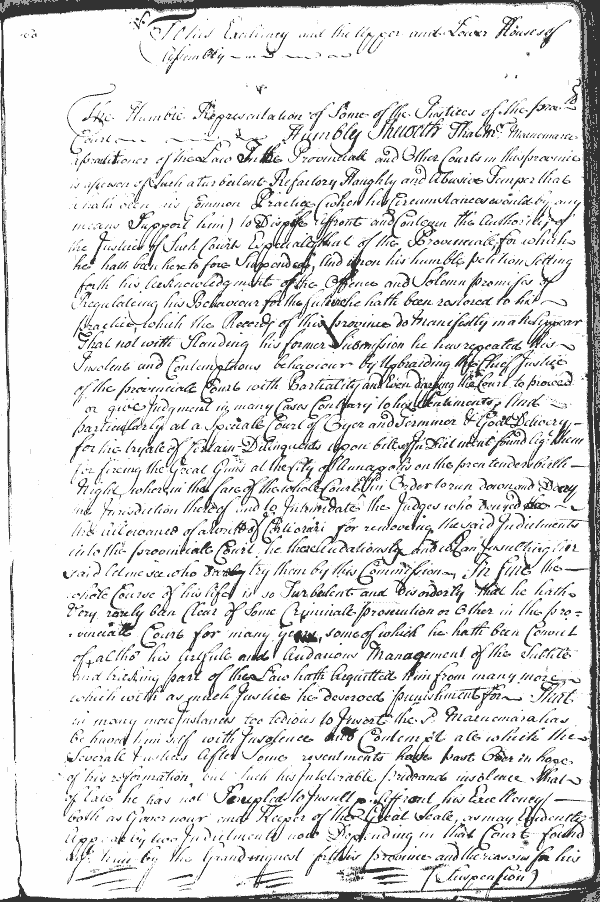 To his Excellency and the Upper and Lower Houses of
Assembly
The Humble Representation of Some of the Justices of the Pro
Court Humbly Sheweth That Mr. Macnemara
a practitioner of the Law In the Provinciale and Other Courts in this province
is a person of Such a turbulent Refactory Haughty and Abusive Temper that
it hath been his Common Practice (when his Circumstances would by any
means Support him) to Dispise affront and Contemn the Authority of
the Justices of Such Courts Especiale that of the Provinciale for which
he hath been heretofore Suspended, And upon his humble petition Setting
forth his acknowledgment of the Offence and Solemn promises of
Regulateing his Behaviour for the future he hath been restored to his
practice, which the Records of this province do Manifestly make appear
That not with Standing his former Submission he has repeated his
Insolent and Contemptuous behaviour by Upbraiding the Chief Justice
of the provinciale Court with Partiality and Even dareing the Court to proceed
or give Judgment in many Cases Contrary to his Sentiments, And
particularly at a Speciale Court of Oyer and Terminer & Goal Delivery
for the tryale of Certain Delinquents upon bills of Indictment found against them
for fireing the Great Guns at the City of Annapolis on the pretenders birth
Night, when, in the face of the whole Court In Order to run down and Deny
the Jurisdiction thereof and to Intimidate the Judges who denyed
the allowance of a writt of Certiorari for removeing the said Indictments
into the provinciale Court, he then Audatiously and in an Insulting
said let me see who dares try them by this Commission, In fine the
whole Course of his life is so Turbulent and disorderly that he hath
Very rarely been Clear of Some Criminale prosecution or Other in the pro=
vinciale Court for many years, some of which he hath been Convict
of, altho his artfule and Audacious Management of the Subtile
and tricking part of the Law hath acquitted him from many more
which with as much Justice he deserved punishment for That
in many more Instances too tedious to Insert the Sd. Macnemara has
behaved himself with Insolence and Contempt ale which the
Severale Justices after Some resentments have past Over in hopes
of his reformation but Such his Intolerable pride and insolence that
of late he has not Scrupled to Insult & affront his Excellency
both as Governour and Keeper of the Great Seale, as may Evidently
appear by two Indictments now Depending in that Court found
agt. him by the Grand inquest for this province and the reasons for his
(Suspension)